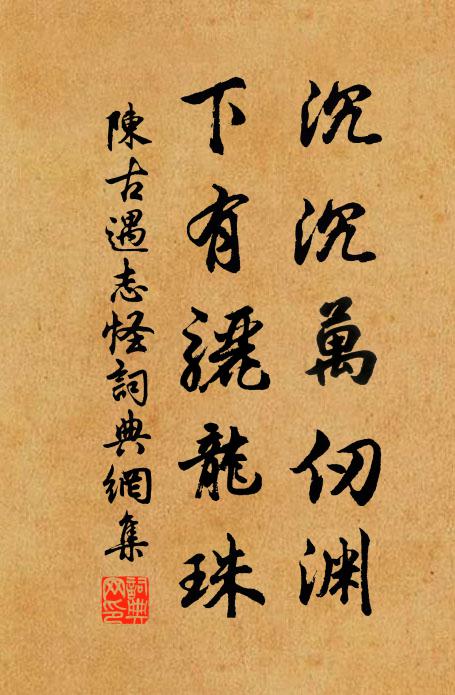 沉沉萬仞淵
下有驪龍珠
陳古遇志怪詞典網集
詞典網印